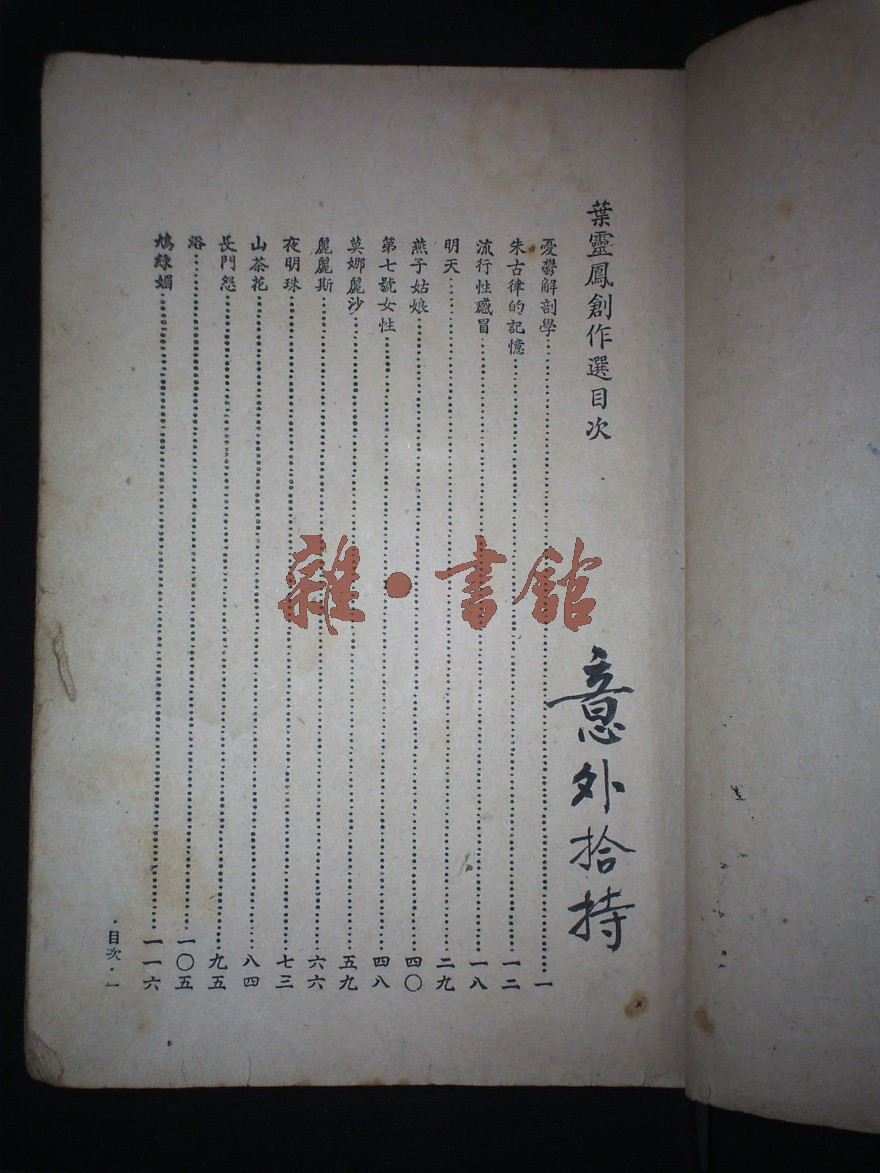 葉靈鳳創作選目次
憂鬱解剖學……一
朱古律的記憶……一二
流行性感冒……一八
明天……二九
燕子姑娘……四〇
第七號女性……四八
莫娜麗沙……五九
麗麗斯……六六
夜明珠……七三
山茶花……八四
長門怨……九五
浴……一〇五
鳩綠媚……一一六
·目次·一
意外拾持
雜·書館